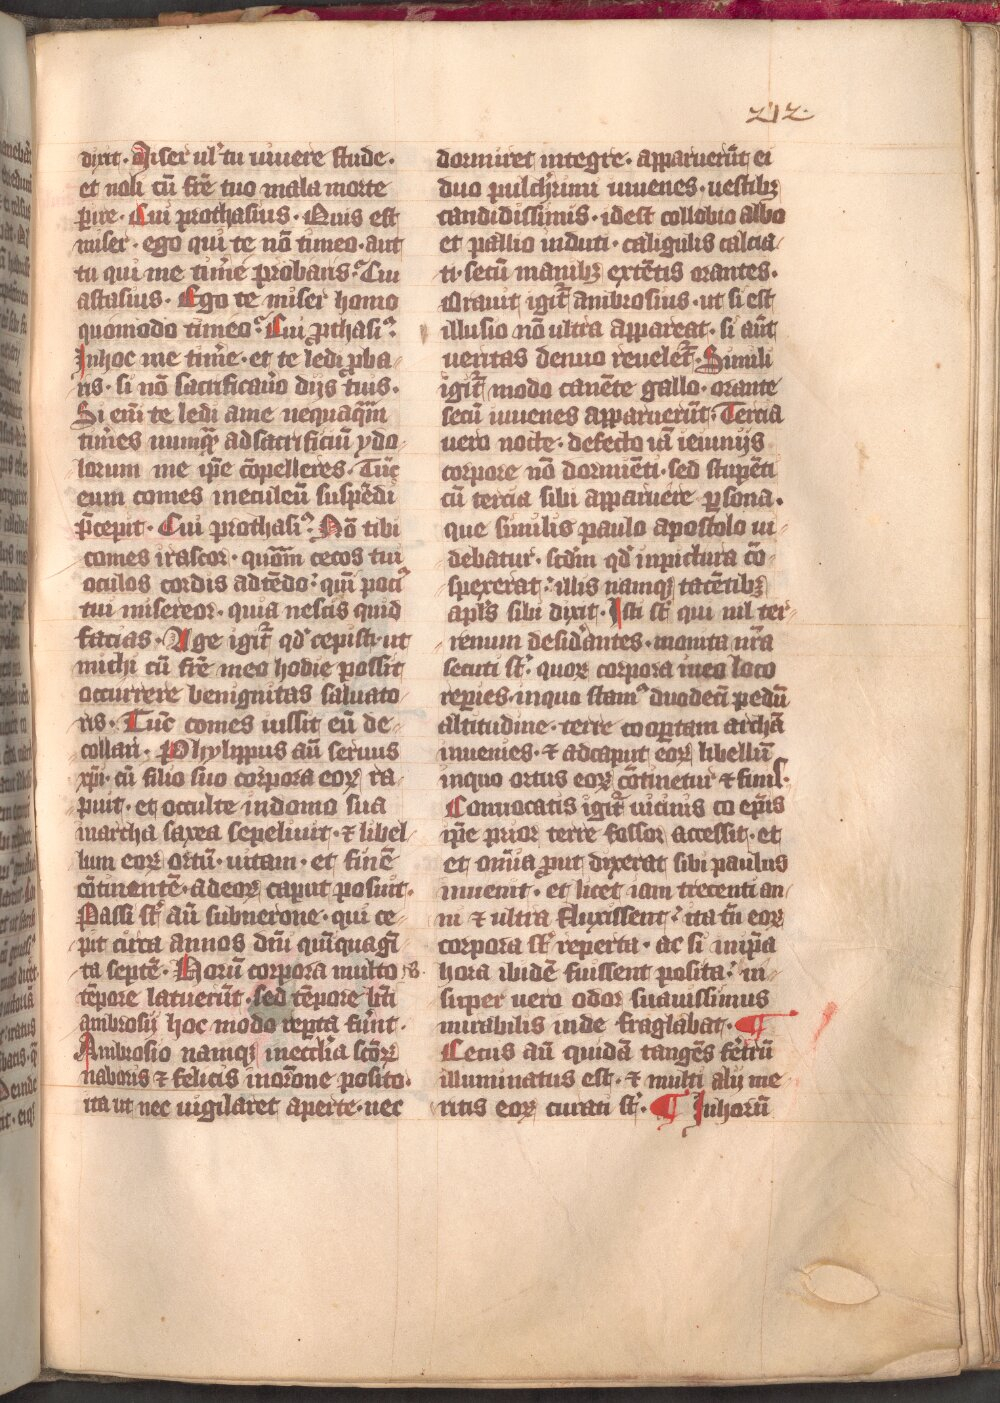 212
dixit. Miser ul' tu uiuere stude.
et noli cū frē tuo mala morte
ꝑire. Cui prothasius. Quis est
miser. ego qui te nō timeo. aut
tu qui me timē probaris? Cui
astasius. Ego te miser homo
quomodo timeo? Cui ꝓthasi⁹.
Inhoc me timē. et te ledi ꝓba-
ris. si nō sacrificauo dijs tuis.
Si em̄ te ledi ame nequaq̄m
timēs nūmqꝫ adsacrificiū ydo-
lorum me ip̄e cōpelleres. Tūc
eum comes ineculeū suspēdi
p̄cepit. Cui prothasi⁹. Nō tibi
comes irascor. quom̄ cecos tui
oculos cordis adtēdo: qm̄ poci⁹
tui misereor. quia nescis quid
facias. Age igit̄ qd' cepisti. ut
michi cū frē meo hodie possit
occurrere benignitas saluato-
ris. Tūc comes iussit eū de-
collari. Phylippus aū seruus
xp̄i. cū filio suo corpora eoꝝ ra-
puit. et occulte indomo sua
inarcha saxea sepeliuit. ⁊ libel-
lum eoꝝ ortū. uitam. et finē
cōtinentē. adeoꝝ caput posuit.
Passi st̄ aū subnerone. qui ce-
pit circa annos dn̄i qui͂quagi͂-
ta septē. Horū corpora multo
tēpore latuerūt. sed tēpore bt̄i
ambrosij hoc modo reꝑta fūnt.
Ambrosio namqꝫ inecclīa scōꝝ
naboris ⁊ felicis inorōne posito.
ita ut nec uigilaret aperte. nec
dormiret integre. apparuerūt ei
duo pulcherimi iuuenes. uestibꝫ
candidissimis. idest collobio albo
et pallio induti. caligulis calcia-
ti. secū manibꝫ extētis orantes.
Orauit igit̄ ambrosius. ut si est
illusio nō ultra appareat. si aūt
ueritas denuo reuelet̄. Simili
igit̄ modo canēte gallo. orante
secū iuuenes apparuerūt. Tercia
uero nocte. defecto iā ieiunijs
corpore nō dormiēti. sed stupēti
cū tercia sibi apparuere ꝑsona.
que similis paulo apostolo ui-
debatur. scdm̄ qd' inpictura cō-
spexerat. illis namqꝫ tacētibꝫ
apl's sibi dixit. Isti st̄ qui nil ter-
renum desid'antes. monita nr̄a
secuti st̄. quoꝝ corpora ineo loco
reꝑies. inquo stam⁹ duodecī pedū
altitudine. terre cooꝑtam archā
inuenies. ⁊ adcaput eoꝝ libellū
inquo ortus eoꝝ cōtinetur ⁊ finis.
Conuocatis igit̄ uicinis co ep̄is
ip̄e prior terre fossor accessit. et
et om̄ia ꝓut dixerat sibi paulus
inuenit. et licet iam trecenti an-
ni ⁊ ultra fluxissent. ita tn̄ eoꝝ
corpora st̄ reperta. ac si inip̄a
hora ibidē fuissent posita. in-
super uero odor suauissimus
mirabilis inde fraglabat. ¶
Cecus aū quidā tangēs fētrū
illuminatus est. ⁊ multi alij me-
ritis eoꝝ curati st̄. ¶ Inhorū